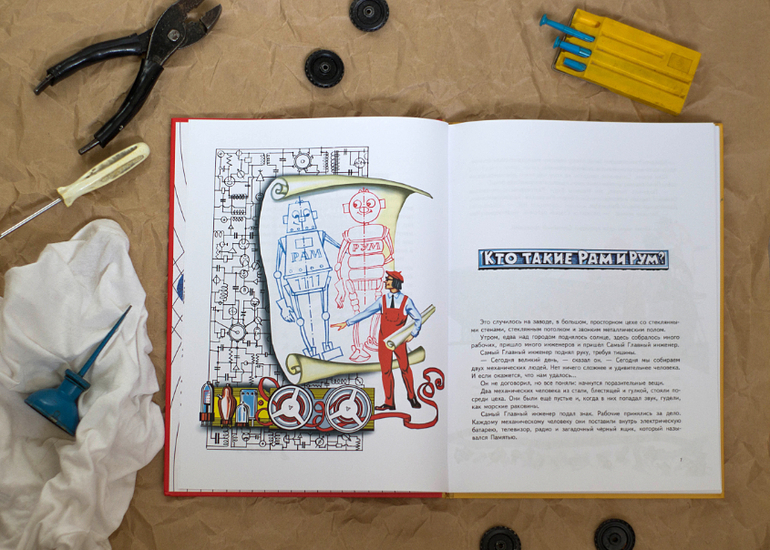 РАМ
РУМ
КТО ТАКИЕ РАМ И РУМ?
Это случилось на заводе, в большом, просторном цехе со стеклянны-
ми стенами, стеклянным потолком и звонким металлическим полом.
Утром, едва над городом поднялось солнце, здесь собралось много
рабочих, пришло много инженеров и пришёл Самый Главный инженер.
Самый Главный инженер поднял руку, требуя тишины.
— Сегодня великий день, — сказал он. — Сегодня мы собираем
двух механических людей. Нет ничего сложнее и удивительнее человека.
И если окажется, что нам удалось...
Он не договорил, но все поняли: начнутся поразительные вещи.
Два механических человека из стали, блестящей и гулкой, стояли по-
среди цеха. Они были ещё пустые и, когда в них попадал звук, гудели,
как морские раковины.
Самый Главный инженер подал знак. Рабочие принялись за дело.
Каждому механическому человеку они поставили внутрь электрическую
батарею, телевизор, радио и загадочный чёрный ящик, который назы-
вался Памятью.